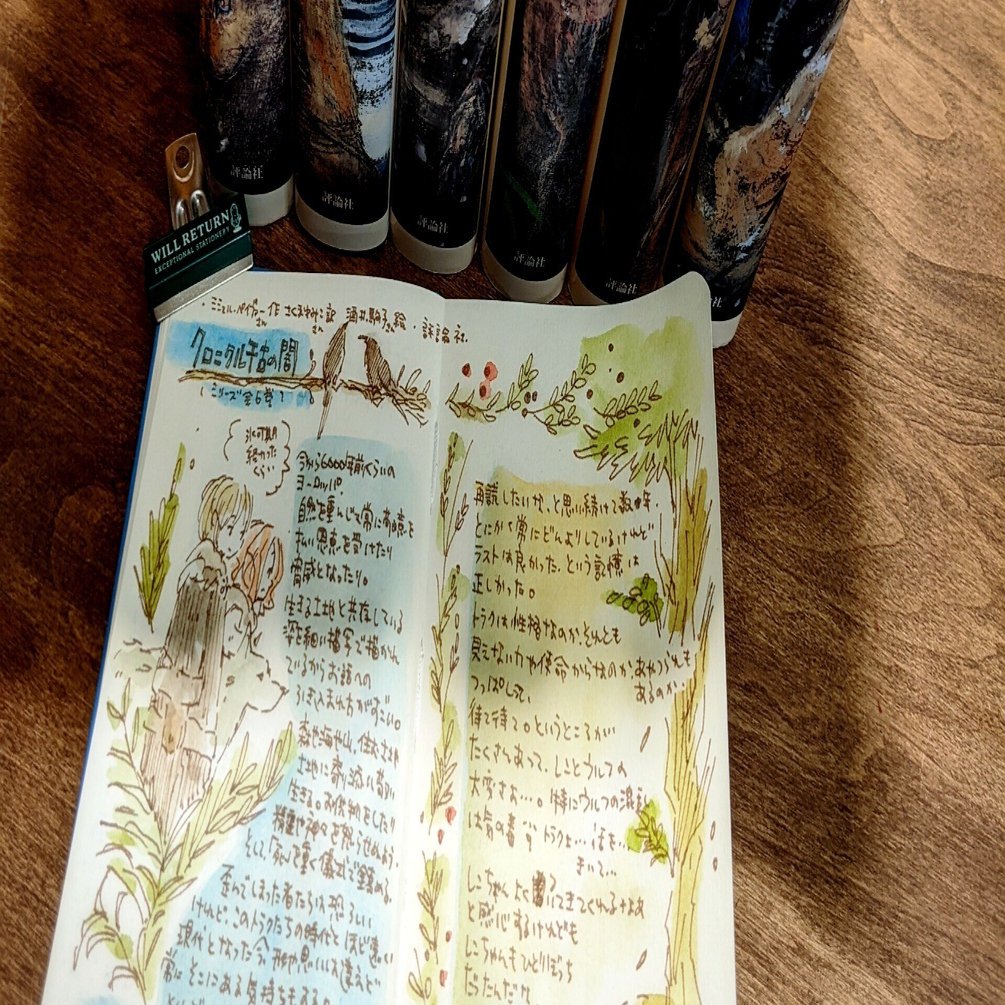 評論社
評論社
評論社
評論社
評論社
評論社
WILL RETURN
EXCEPTIONAL STATIONERY
・ミシェル・ペイヴァー作 さくまゆみこ訳 酒井駒子絵・評論社
さん さん さん
クロニクル千古の闇
(シリーズ全6巻)
氷河期
終わった
くらい
今から6000年前くらいの
ヨーロッパ。
自然を重んじて常に畏怖を
もい恩恵を受けたり
脅威となったり。
生きる土地と共存している
深を細い描写で描かん
ているからお話への
引き込まれ方がすごい。
森や海や山、住む
土地に寄り添い
生きる。お供物をしたり
精霊や神々を怒らせぬよう。
そして、命を重く儀式で鎮める。
歪んでしまった者たちは恐ろしい
けれど、このトラクたちの時代とほど遠い
現代となった今、形や思いは違えど
常にそこにある気持ちもする。
再読したいな、と思い続けて数年。
とにかく常にどんよりしているけれど
ラストは良かった、という記憶は
正しかった。
トラクは性格なのか、それとも
見えない力や使命からなのか、あやうさも
あるのか
つっぱしって、
待て待て。というところが
たくさんあって、しごとウルフの
大変さよ…。特にウルフの混乱
は気の毒… トラクよ…話を…
きいて…
しこちゃん よく書いてきてくれるなよぁ
と感心するけれども
しこちゃんもひとりぼっち
だったんだね